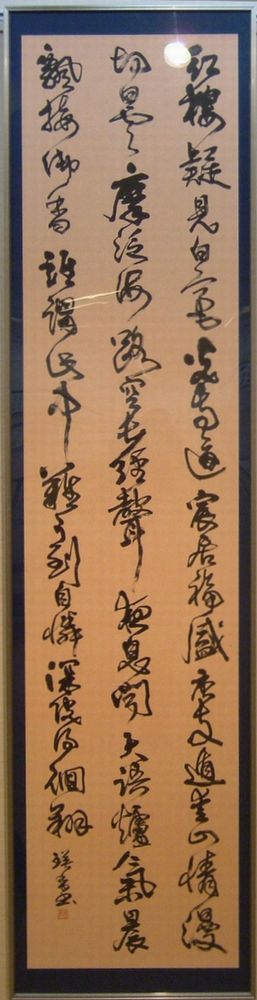 紅樓疑見白毫光寺逼宸居福盛唐支遁愛山情漫
切曇摩泛海路空長經聲夜息聞天語爐氣晨
飄接御香誰謂此中難可到自憐深院得徊翔